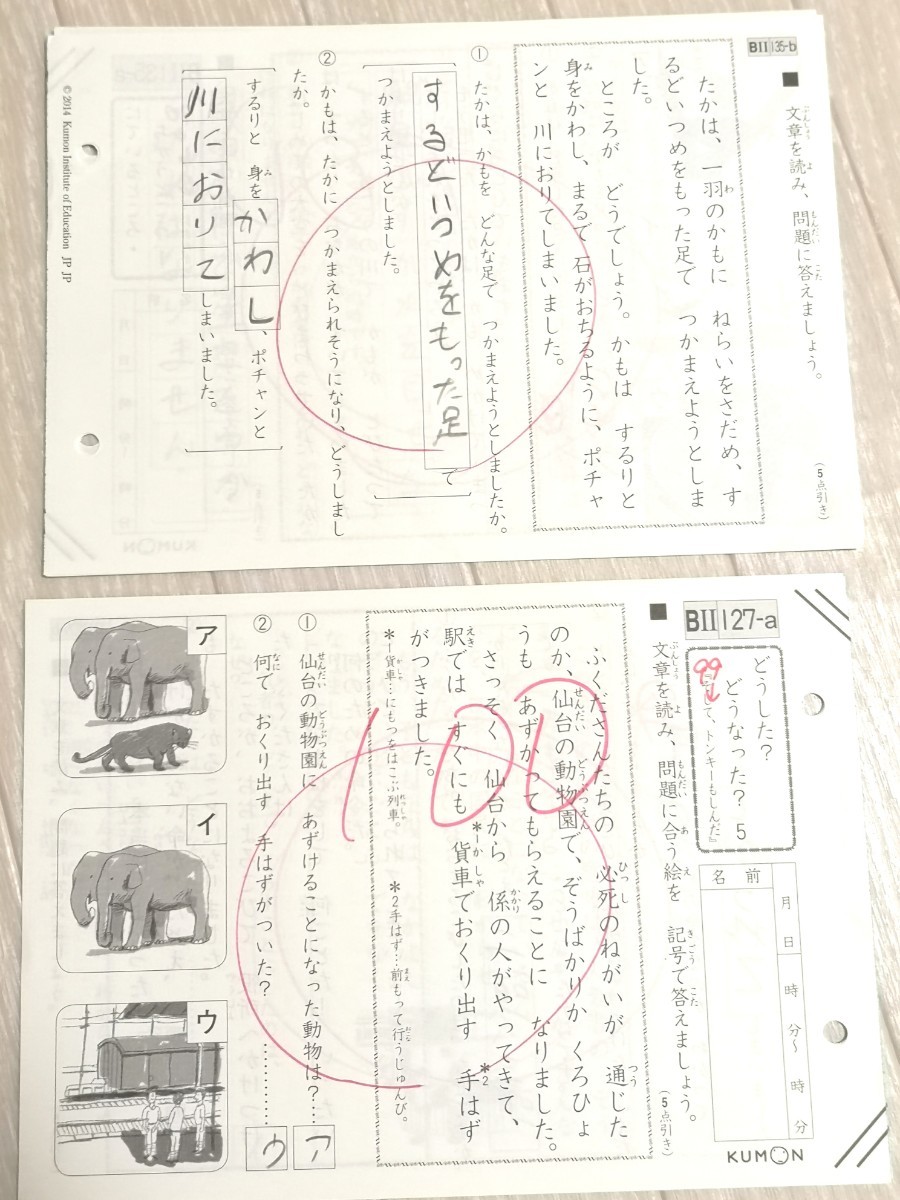 BII 135-b
■ 文章を読み、問題に答えましょう。
(5点引き)
たかは、一羽のかもに ねらいをさだめ、す
るどいつめをもった足で つかまえようとしま
した。
ところが どうでしょう。かもは するりと
身をかわし、まるで 石がおちるように、ポチャ
ンと 川におりてしまいました。
① たかは、かもを どんな足で つかまえようとしましたか。
するどいつめをもった足 で
つかまえようとしました。
② かもは、たかに つかまえられそうになり、どうしまし
たか。
するりと 身をかわし、ポチャンと
川におりてしまいました。
© 2014 Kumon Institute of Education JP JP
BII 127-a
どうした?
どうなった? 5
して、トンキーもしんだ』
99
月 日 時 分〜 時 分
名前
KUMON
■ 文章を読み、問題に合う絵を 記号で答えましょう。
(5点引き)
ふくださんたちの 必死のねがいが 通じた
のか、仙台の動物園で、ぞうばかりか くろひょ
うも あずかってもらえることに なりました。
さっそく 仙台から 係の人がやってきて、
駅では すぐにも *1貨車でおくり出す *2手はず
がつきました。
*1貨車…にもつをはこぶ列車。 *2手はず…前もって行うじゅんび。
100
① 仙台の動物園に あずけることになった動物は?… ア
② 何で おくり出す 手はずがついた?………… ウ
ア
イ
ウ